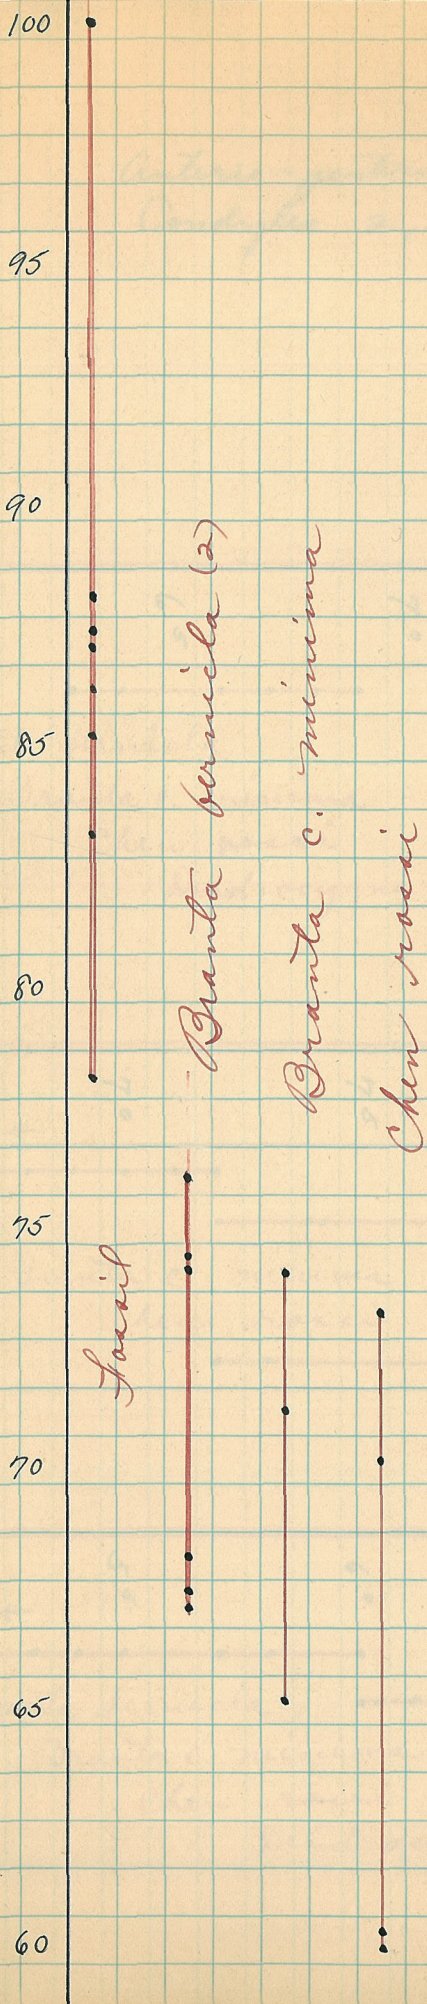 100
95
90
85
80
75
70
65
60
Fossil
Branta bernicla (2)
Branta c. minima
Chen rossi